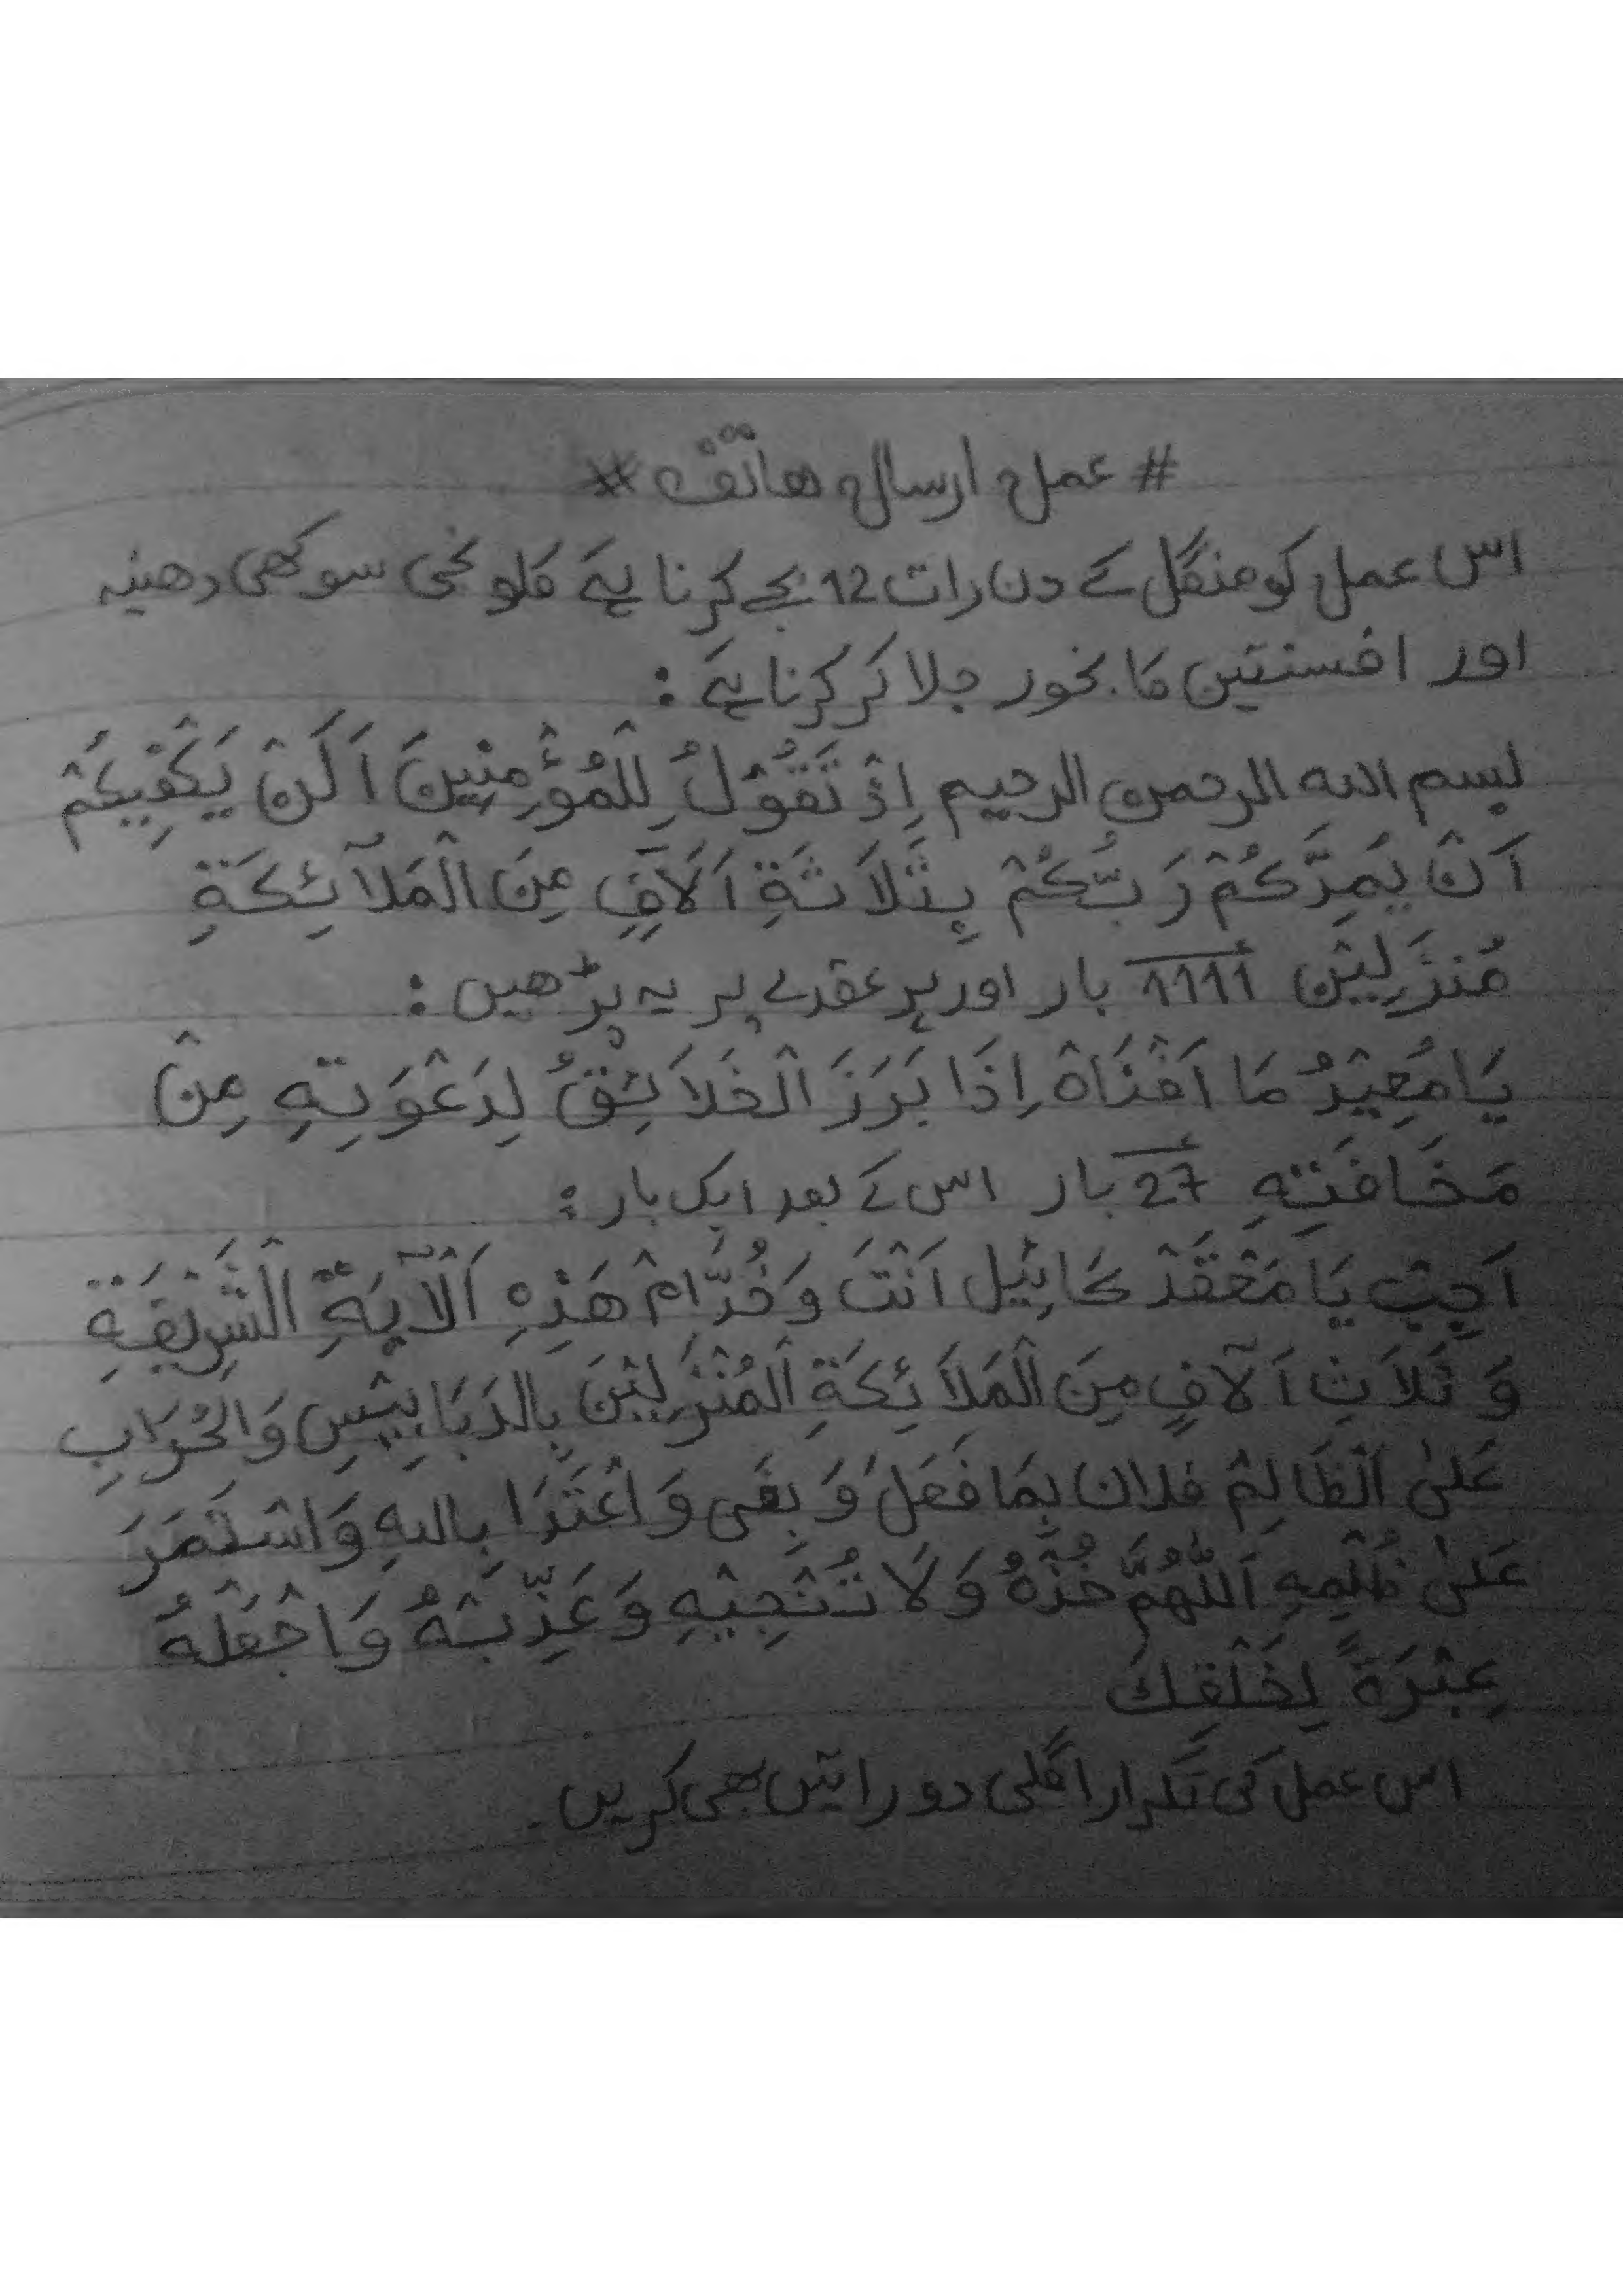 # عمل ارسال ھاتف #
اس عمل کو منگل کے دن رات 12 بجے کرنا ہے کلونجی سوکھی دھنیہ
اور افسنتین کا بخور جلا کر کرنا ہے :
بسم اللہ الرحمن الرحیم اِذْ تَقُوْلُ لِلْمُؤْمِنِیْنَ اَلَنْ یَکْفِیَکُمْ
اَنْ یُمِدَّکُمْ رَبُّکُمْ بِثَلَاثَةِ اَلَآفٍ مِنَ الْمَلَآئِکَةِ
مُنْزَلِیْن 1111 بار اور ہر عقدے پر یہ پڑھیں :
یَا مُعِیْدُ مَا اَفْنَاهُ اِذَا بَرَزَ الْخَلَائِقُ لِدَعْوَتِهِ مِنْ
مَخَافَتِهِ 27 بار اس کے بعد ایک بار :
اَجِبْ یَا مَعْقَدْ کَائِیْل اَنْتَ وَ خُدَّامْ هَذِهِ اَلْآیَةِ الْشَرِیْفَةِ
وَ ثَلَاثِ اَلآفٍ مِنَ الْمَلَائِکَةِ اَلْمُنْزَلِیْنَ بِالدَبَابِیْسِ وَالْحُرَابِ
عَلیٰ اَلْظَالِمْ فلان بِمَا فَعَلَ وَ بَغَی وَ اعْتَدَا بِاللهِ وَاسْتَمَرَ
عَلیٰ ظُلْمِهِ اَللّٰهُمَّ خُذْهُ وَلَا تُنْجِیْهِ وَ عَذِّبْهُ وَ اجْعَلْهُ
عِبْرَةً لِخَلْقِكَ
اس عمل کی تکرار اگلی دو راتیں بھی کریں۔